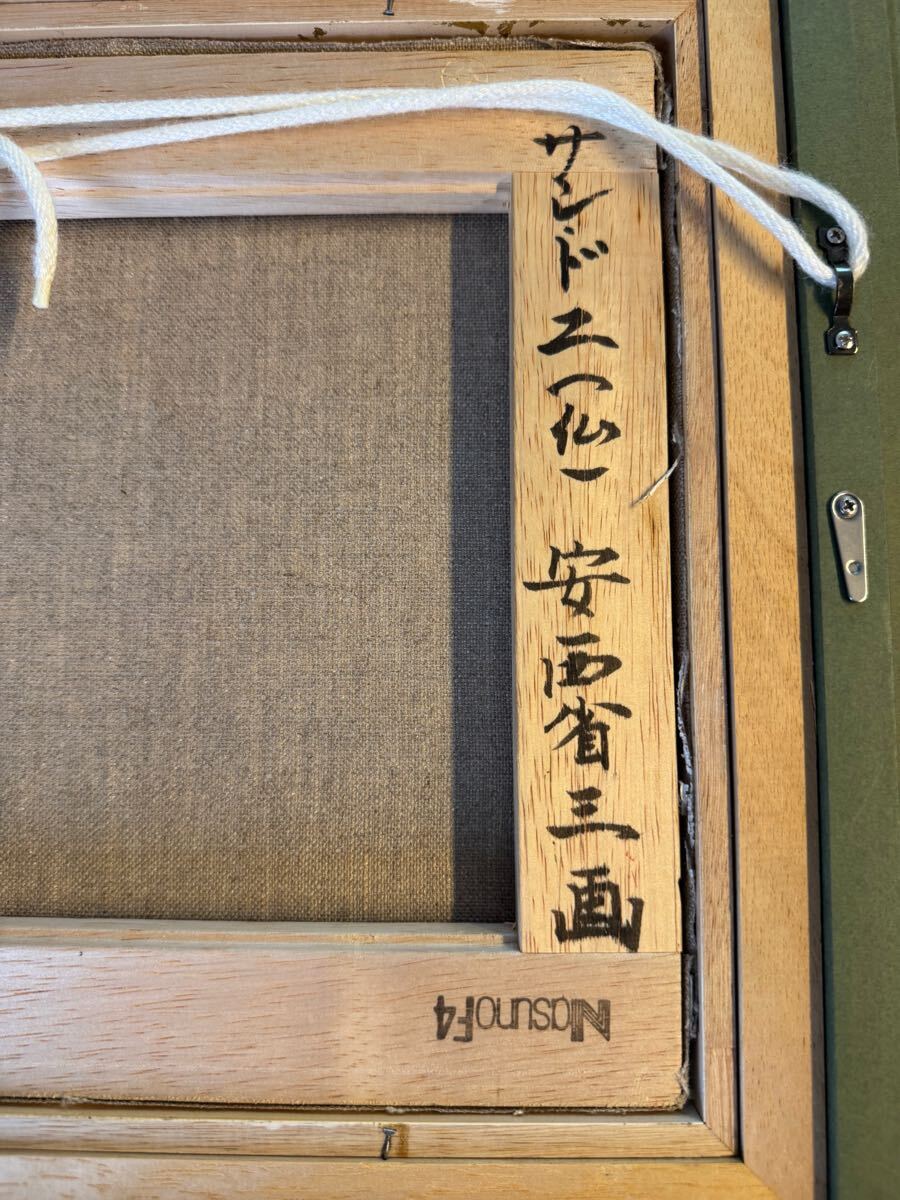 サンドニ(仏)
安西省三画
NasunoF4